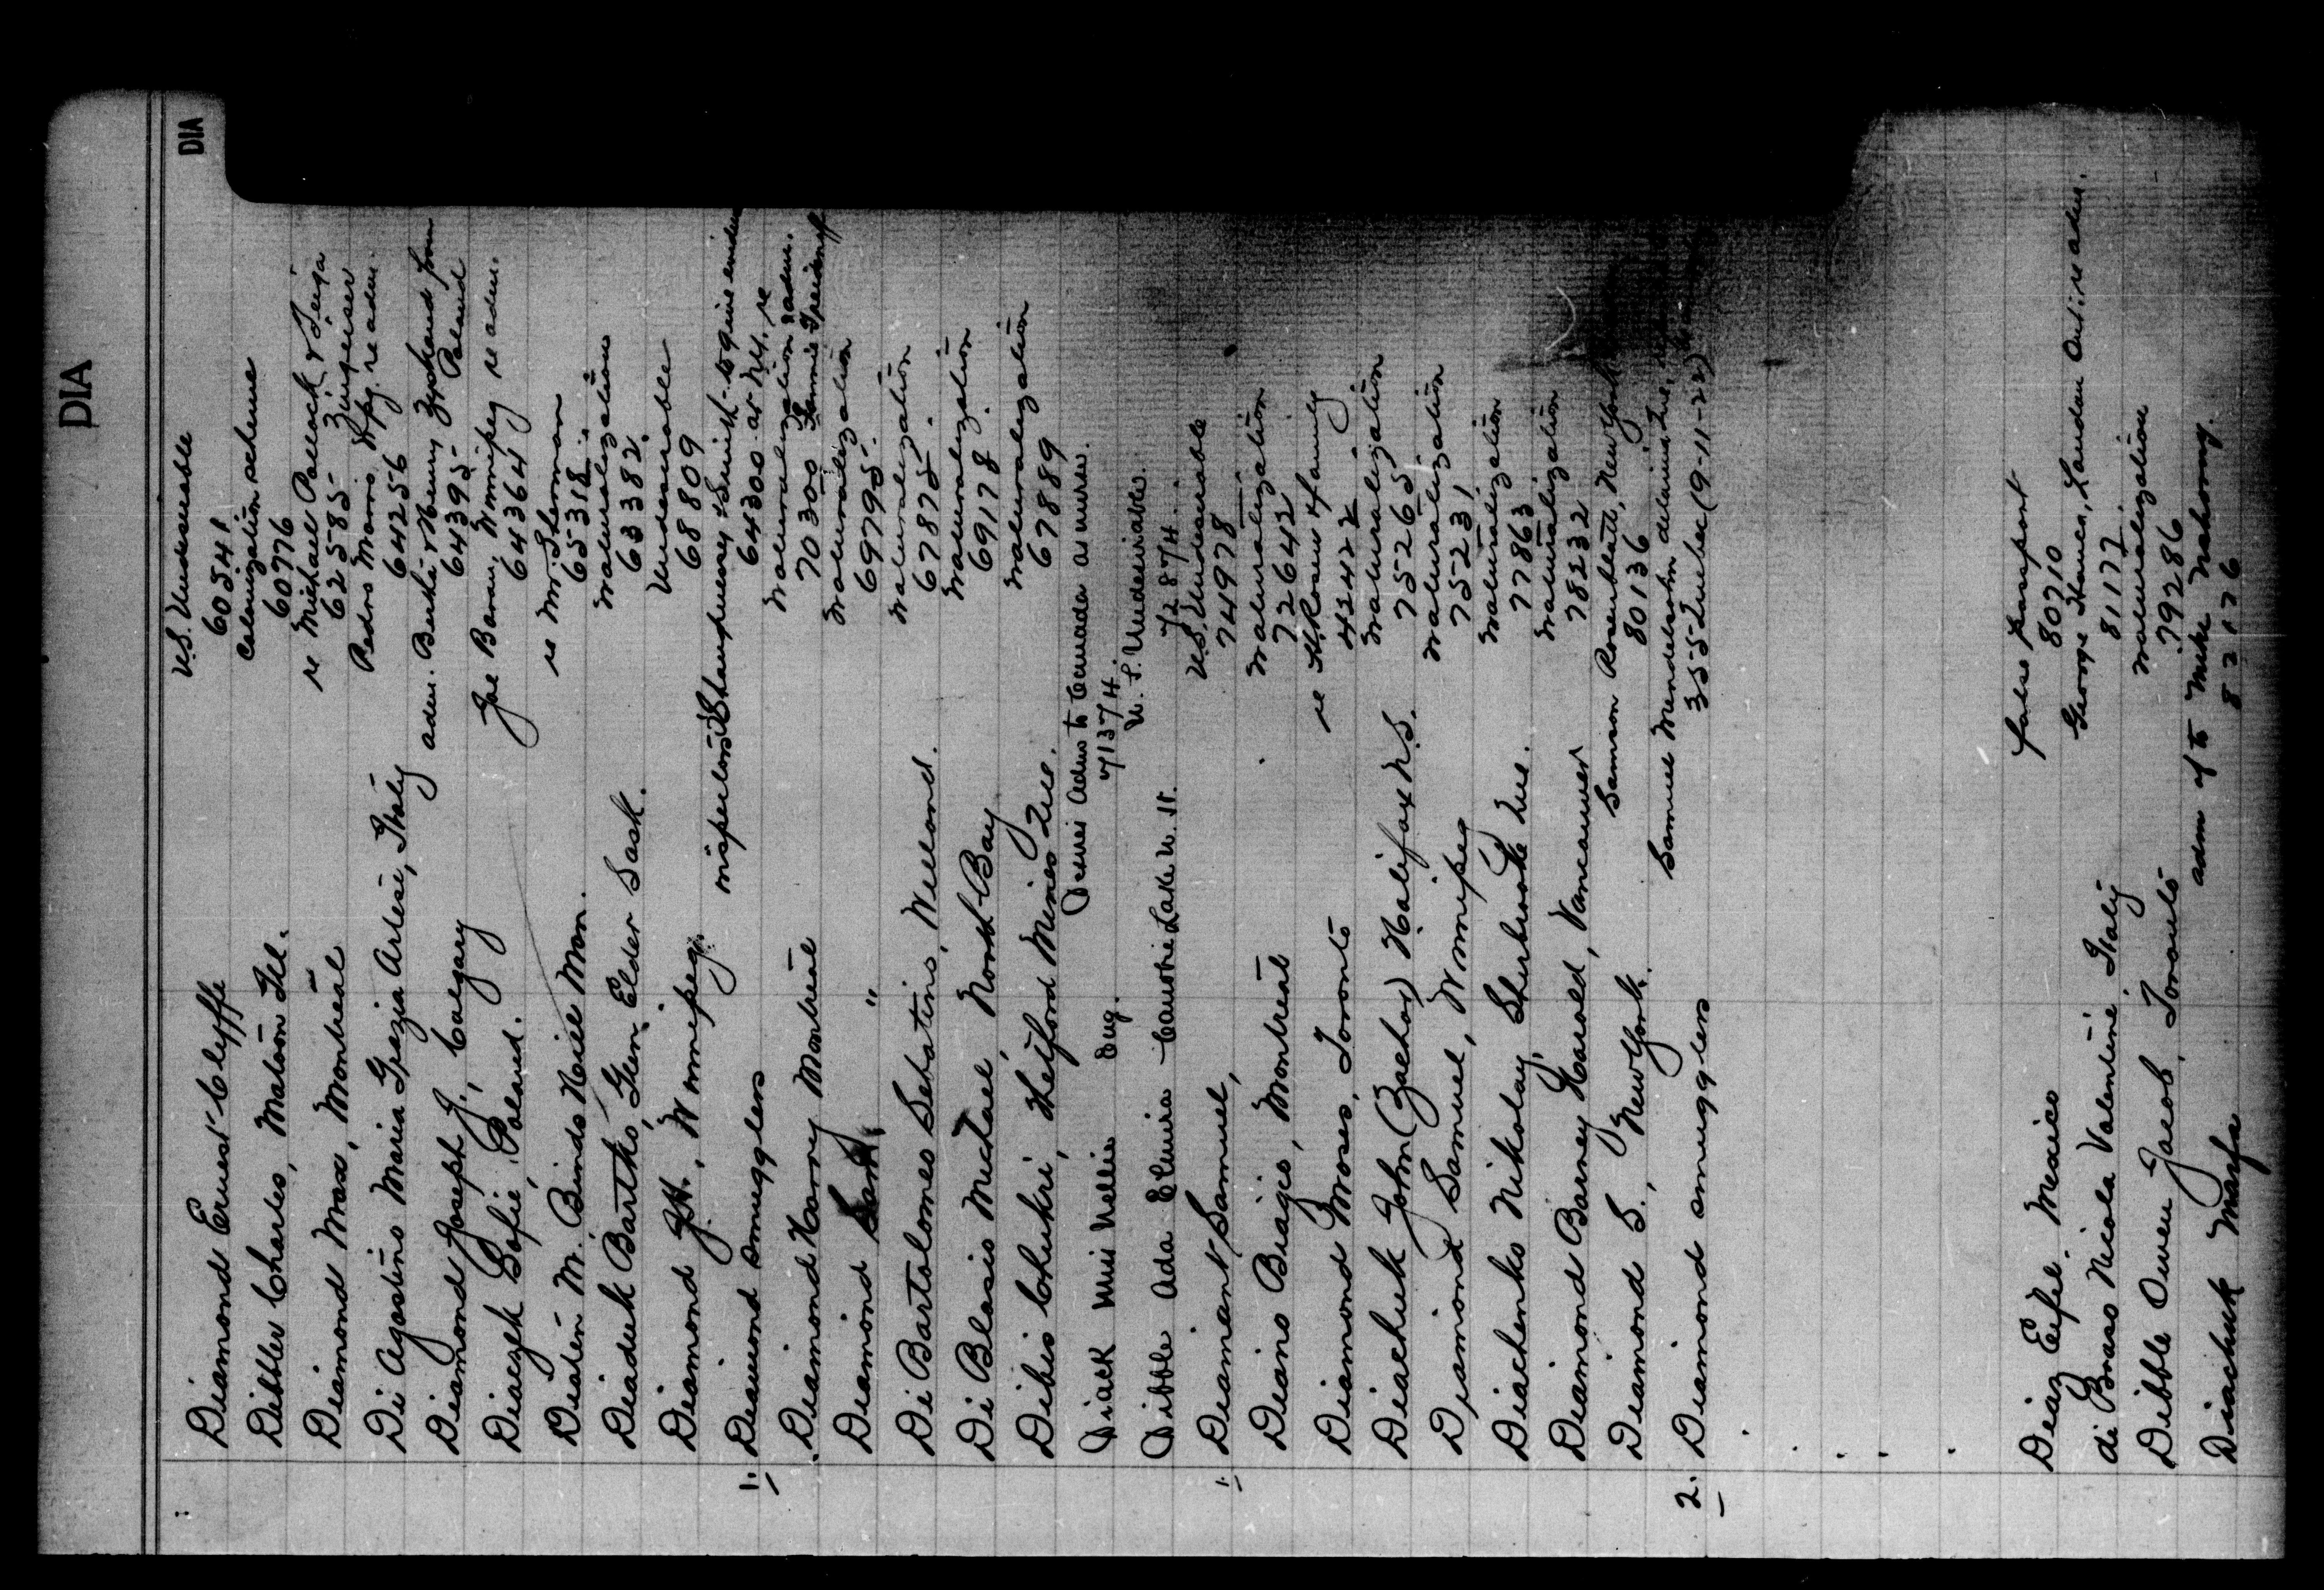 DIA
DIA
Diamond Ernest Clyffe U.S. Undesirable
60541
Dibbler Charles, Matoon Ill. Colonization scheme
60776
Diamond Max, Montreal re Michael Pollock &
62585
Di Agostino Maria Grazia Arlesi, Italy Pedro Marro Wpg. re adm.
64256
Diamond Joseph J., Calgary adm. Berko & Henny from Poland
64395
Diaczek Sofie, Poland. Joe Baran, Winnipeg re adm.
64364
Dialen M. Binds Mill Man. re Mr. Sherman
65318
Diaduk Bartko, Glen Elder Sask. Naturalization
63382
Diamond J.H., Winnipeg. Undesirable
68809
1. Diamond Smugglers
64300 at N.Y. re
Diamond Harry Montreal Naturalization
70300
Diamond Sam, " Naturalization
69795
Di Bartolomeo Sebatino, Welland. Naturalization
67875
Di Blasio Michael, North Bay Naturalization
69178
Dibis Chukri, Thetford Mines Que. Naturalization
67889
Diack Miss Nellie Eng. Desires adm to Canada as nurse.
71374
Dibble Ada Elmira Lake U. St. U. S. Undesirable.
72874
1. Diamant Samuel, U.S. Undesirable
74978
Diano Biagio, Montreal Naturalization
72642
Diamond Moses, Toronto re H. Rosen & family
42422
Diachuk John (Zachar) Halifax N.S. Naturalization
75265
Diamond Samuel, Winnipeg Naturalization
75231
Diachenko Nikolay, Sherbrooke Que. Naturalization
77863
Diamond Barney Harold, Vancouver Naturalization
78232
Diamond S., New York. Samson Rosenblatt, New York
80136
2. Diamond smugglers Samuel Mendelsohn
355 Quebec (9-11-22)
Diaz Eifel Mexico false passport
80710
di Braso Nicola Valentine Italy George Hance, London Ont. re adm.
81177
Dibble Owen Jacob, Toronto Naturalization
79286
Diachuk Marfa adm of to Mike Nahorny.
82176